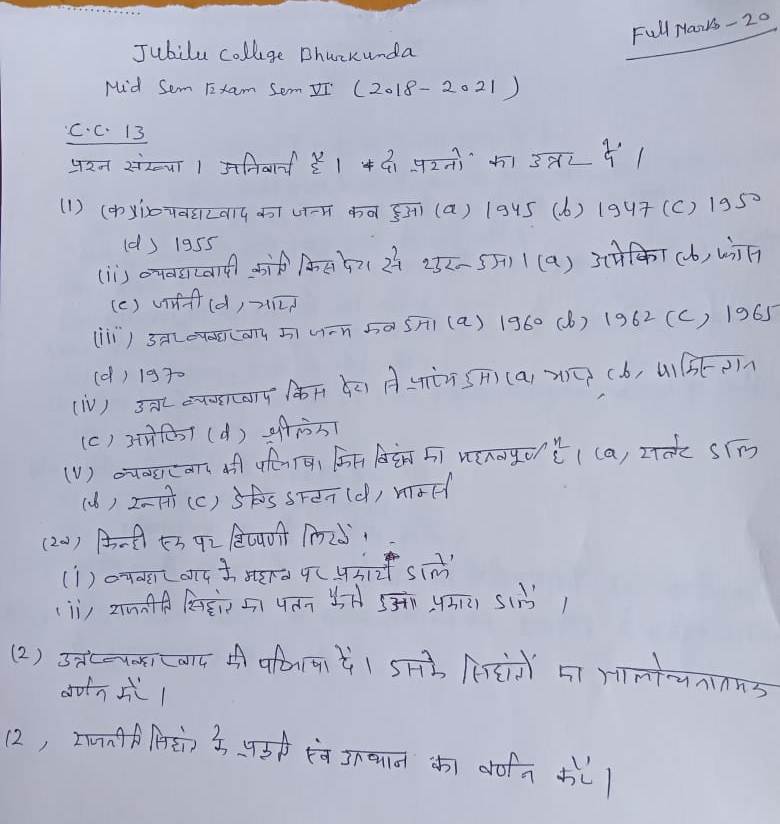 Full Marks - 20
Jubilee College Bhurkunda
Mid Sem Exam Sem VI (2018 - 2021)
C.C. 13
प्रश्न संख्या 1 अनिवार्य है। दो प्रश्नों का उत्तर दें।
(1) (क) (i) व्यवहारवाद का जन्म कब हुआ (a) 1945 (b) 1947 (c) 1950
(d) 1955
(ii) व्यवहारवादी क्रांति किस देश से शुरू हुआ। (a) अमेरिका (b) फ्रांस
(c) जर्मनी (d) भारत
(iii) उत्तर व्यवहारवाद का जन्म कब हुआ (a) 1960 (b) 1962 (c) 1965
(d) 1970
(iv) उत्तर व्यवहारवाद किस देश से प्रारंभ हुआ (a) भारत (b) पाकिस्तान
(c) अमेरिका (d) श्रीलंका
(v) व्यवहारवाद की परिभाषा किस विद्वान का महत्वपूर्ण है। (a) राबर्ट डाल
(b) रूसो (c) डेविड ईस्टन (d) मार्क्स
(2a) किन्हीं एक पर टिप्पणी लिखें।
(i) व्यवहारवाद के महत्व पर प्रकाश डालें
(ii) राजनीति सिद्धांत का पतन कैसे हुआ प्रकाश डालें।
(2) उत्तर व्यवहारवाद की परिभाषा दें। इसके सिद्धांतों का आलोचनात्मक
वर्णन करें।
(2) राजनीति सिद्धांत के प्रकृति एवं उत्थान का वर्णन करें।